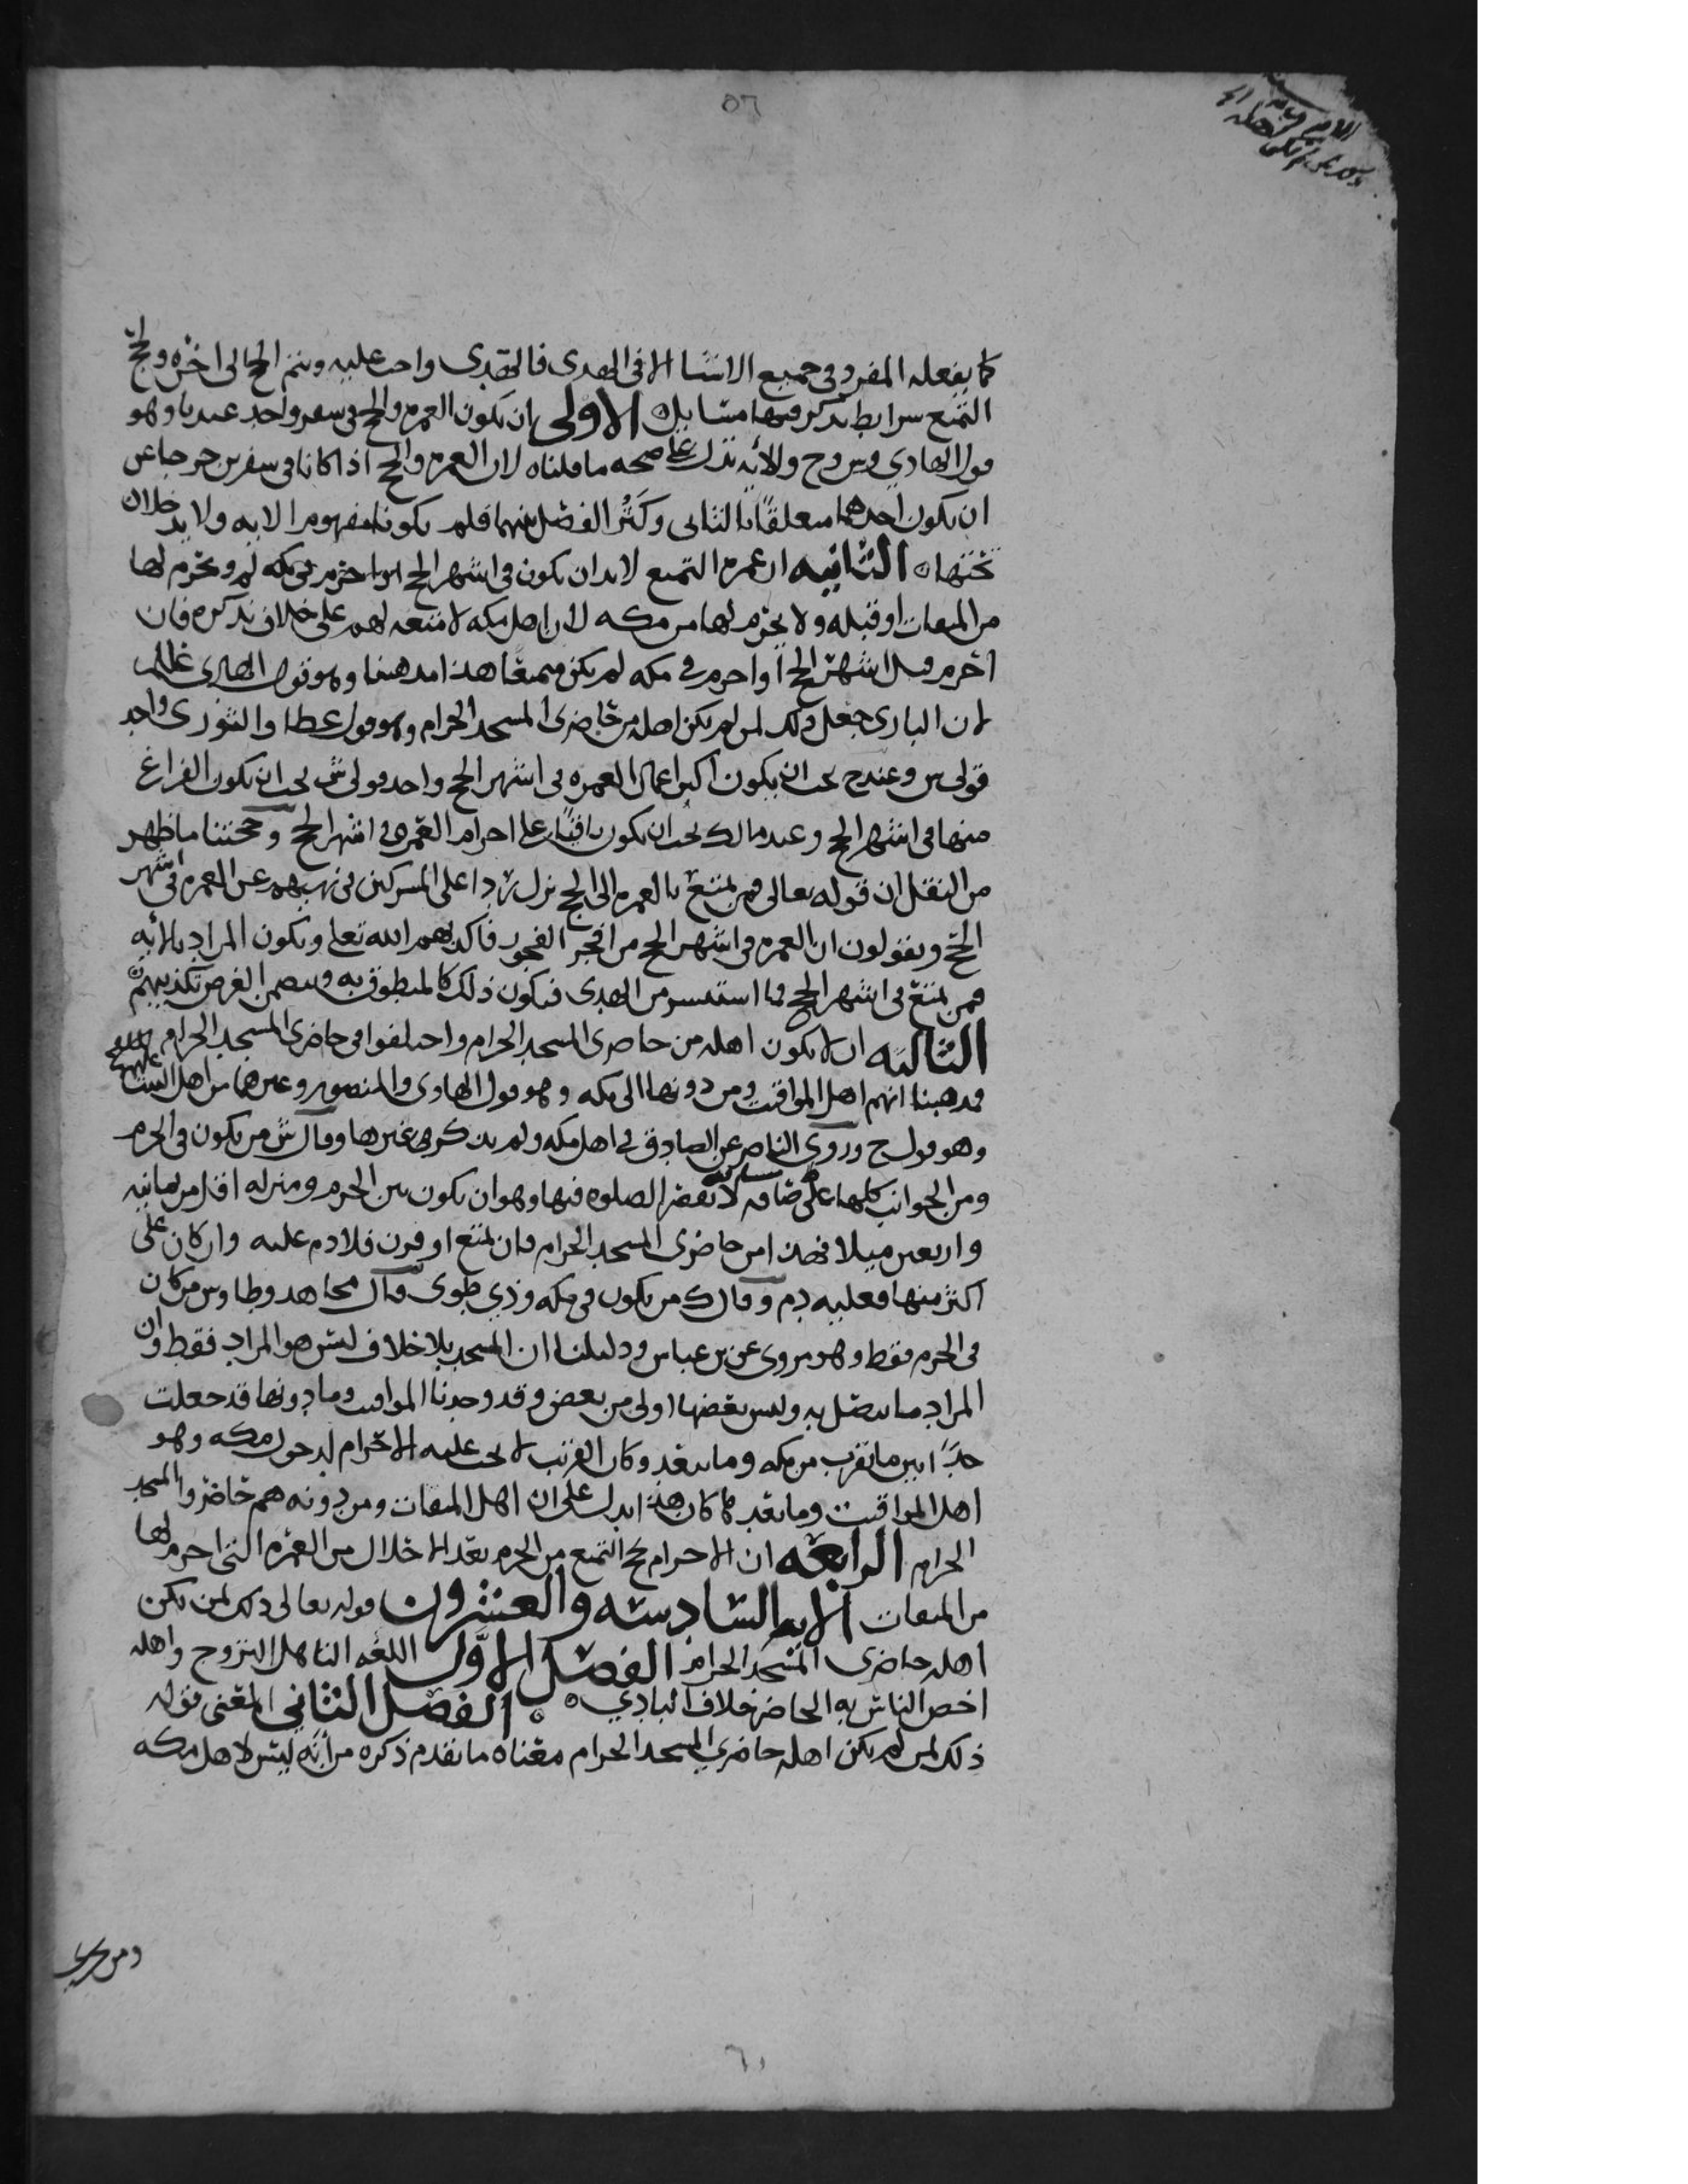 ٥٦
كما يفعله المفرد في جميع الاشيا الا في الهدى فالهدى واجب عليه ويتم الحج الى اخره ولحج
التمتع شرايط نذكر فيها مسايل الاولى ان تكون العمره والحج في سفر واحد عندنا وهو
قول الهادي و س و ح والأيه تدل على صحه ما قلناه لان العمره والحج اذا كانا في سفرين خرجا عن
ان يكون احدهما متعلقًا بالثاني وكثر الفصل بينهما فلم يكونا مفهوم الايه ولا يدخلان
تحتها الثانيه ان عمره التمتع لا بد ان يكون في اشهر الحج في مكه ويحرم لها
من الميقات او قبله ولا يحرم لها من مكه لان اهل مكه لا متعه لهم على خلاف نذكره فان
احرم قبل اشهر الحج او احرم في مكه لم يكن متمتعًا هذا مذهبنا وهو قول الهادى
لان البارى جعل ذلك لمن لم يكن اهله من حاضرى المسجد الحرام وهو قول عطا والثورى واحد
قولى س وعند ح يجب ان يكون اكثر اعمال العمره في اشهر الحج واحد قولى ش يجب ان يكون الفراغ
منها في اشهر الحج وعند مالك يجب ان يكون باقيًا على احرام العمره في اشهر الحج وحجتنا ما ظهر
من النقل ان قوله تعالى فمن تمتع بالعمره الى الحج نزل ردا على المشركين في نهيهم عن العمره في اشهر
الحج ويقولون ان العمره في اشهر الحج من افجر الفجور فاكذبهم الله تعالى ويكون المراد بالأيه
فمن تمتع في اشهر الحج فما استيسر من الهدى فيكون ذلك كالمنطوق به ويتضمن الغرض تكذيبهم
الثالثه ان لا يكون اهله من حاضرى المسجد الحرام واختلفوا في حاضرى المسجد الحرام
فمذهبنا انهم اهل المواقيت ومن دونها الى مكه وهو قول الهادى والمنصور وغيرهما من اهل البيت
وهو قول ح وروى الناصر عن الصادق في اهل مكه ولم يذكر غيرها وقال ش من يكون في الحرم
ومن الجوانب كلها على مسافه لا تقصر الصلوه فيها وهو ان يكون بين الحرم ومنزله اقل من ثمانيه
واربعين ميلا فهذا من حاضرى المسجد الحرام فان تمتع او قرن فلا دم عليه وان كان على
اكثر منها فعليه دم وقال ك من يكون في مكه وذي طوى وقال مجاهد وطاوس من كان
في الحرم فقط وهو مروى عن بن عباس ودليلنا ان المسجد بلا خلاف ليس هو المراد فقط وان
المراد ما يتصل به وليس بعضها اولى من بعض وقد وجدنا المواقيت وما دونها قد جعلت
حدًا بين ما يقرب من مكه وما يبعد وكان القريب لا يجب عليه الاحرام لدخول مكه وهو
اهل المواقيت وما بعد كان هذا يدل على ان اهل الميقات ومن دونه هم حاضروا المسجد
الحرام الرابعه ان الاحرام لحج التمتع من الحرم بعد الاحلال من العمره التي احرم لها
من الميقات الايه السادسه والعشرون قوله تعالى ذلك لمن يكن
اهله حاضرى المسجد الحرام الفصل الاول اللغه التاهل التزوج واهله
اخص الناس به الحاضر خلاف البادي الفصل الثاني المعنى قوله
ذلك لمن لم يكن اهله حاضري المسجد الحرام معناه ما تقدم ذكره من أنه ليس لاهل مكه